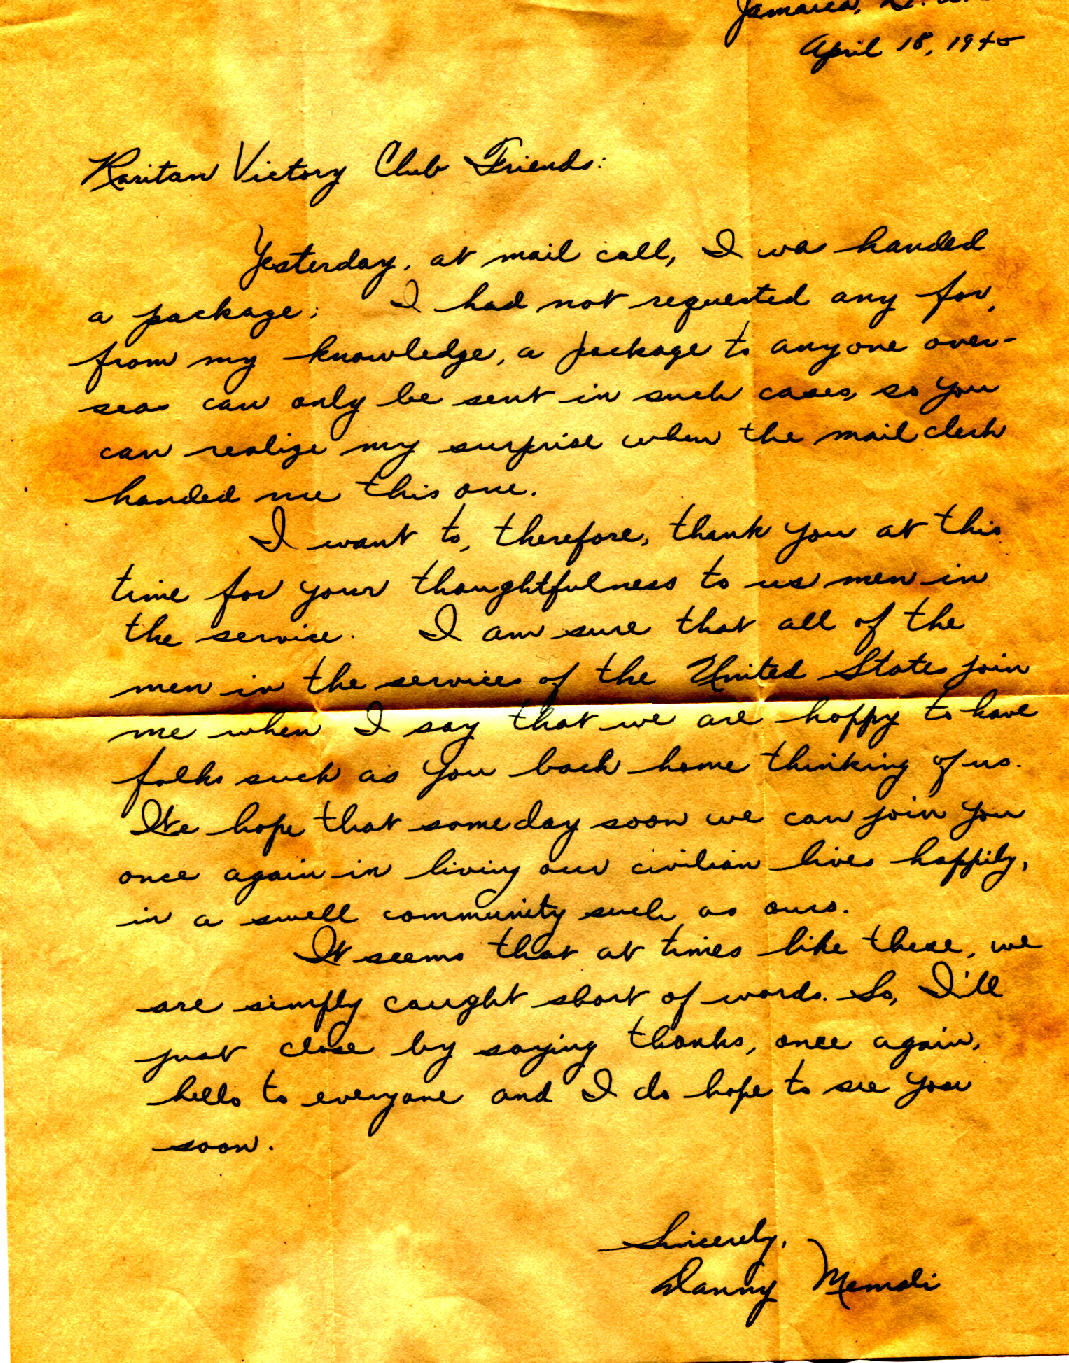 Jamaica,
April 18, 1945
Raritan Victory Club Friends:
Yesterday, at mail call, I was handed
a package; I had not requested any for,
from my knowledge, a package to anyone over-
seas can only be sent in such cases, so you
can realize my surprise when the mail clerk
handed me this one.
I want to, therefore, thank you at this
time for your thoughtfulness to us men in
the service. I am sure that all of the
men in the services of the United States join
me when I say that we are happy to have
folks such as you back home thinking of us.
We hope that someday soon we can join you
once again in living our civilian lives happily,
in a swell community such as ours.
It seems that at times like these, we
are simply caught short of words. So, I'll
just close by saying thanks, once again,
hello to everyone and I do hope to see you
soon.
Sincerely,
Danny